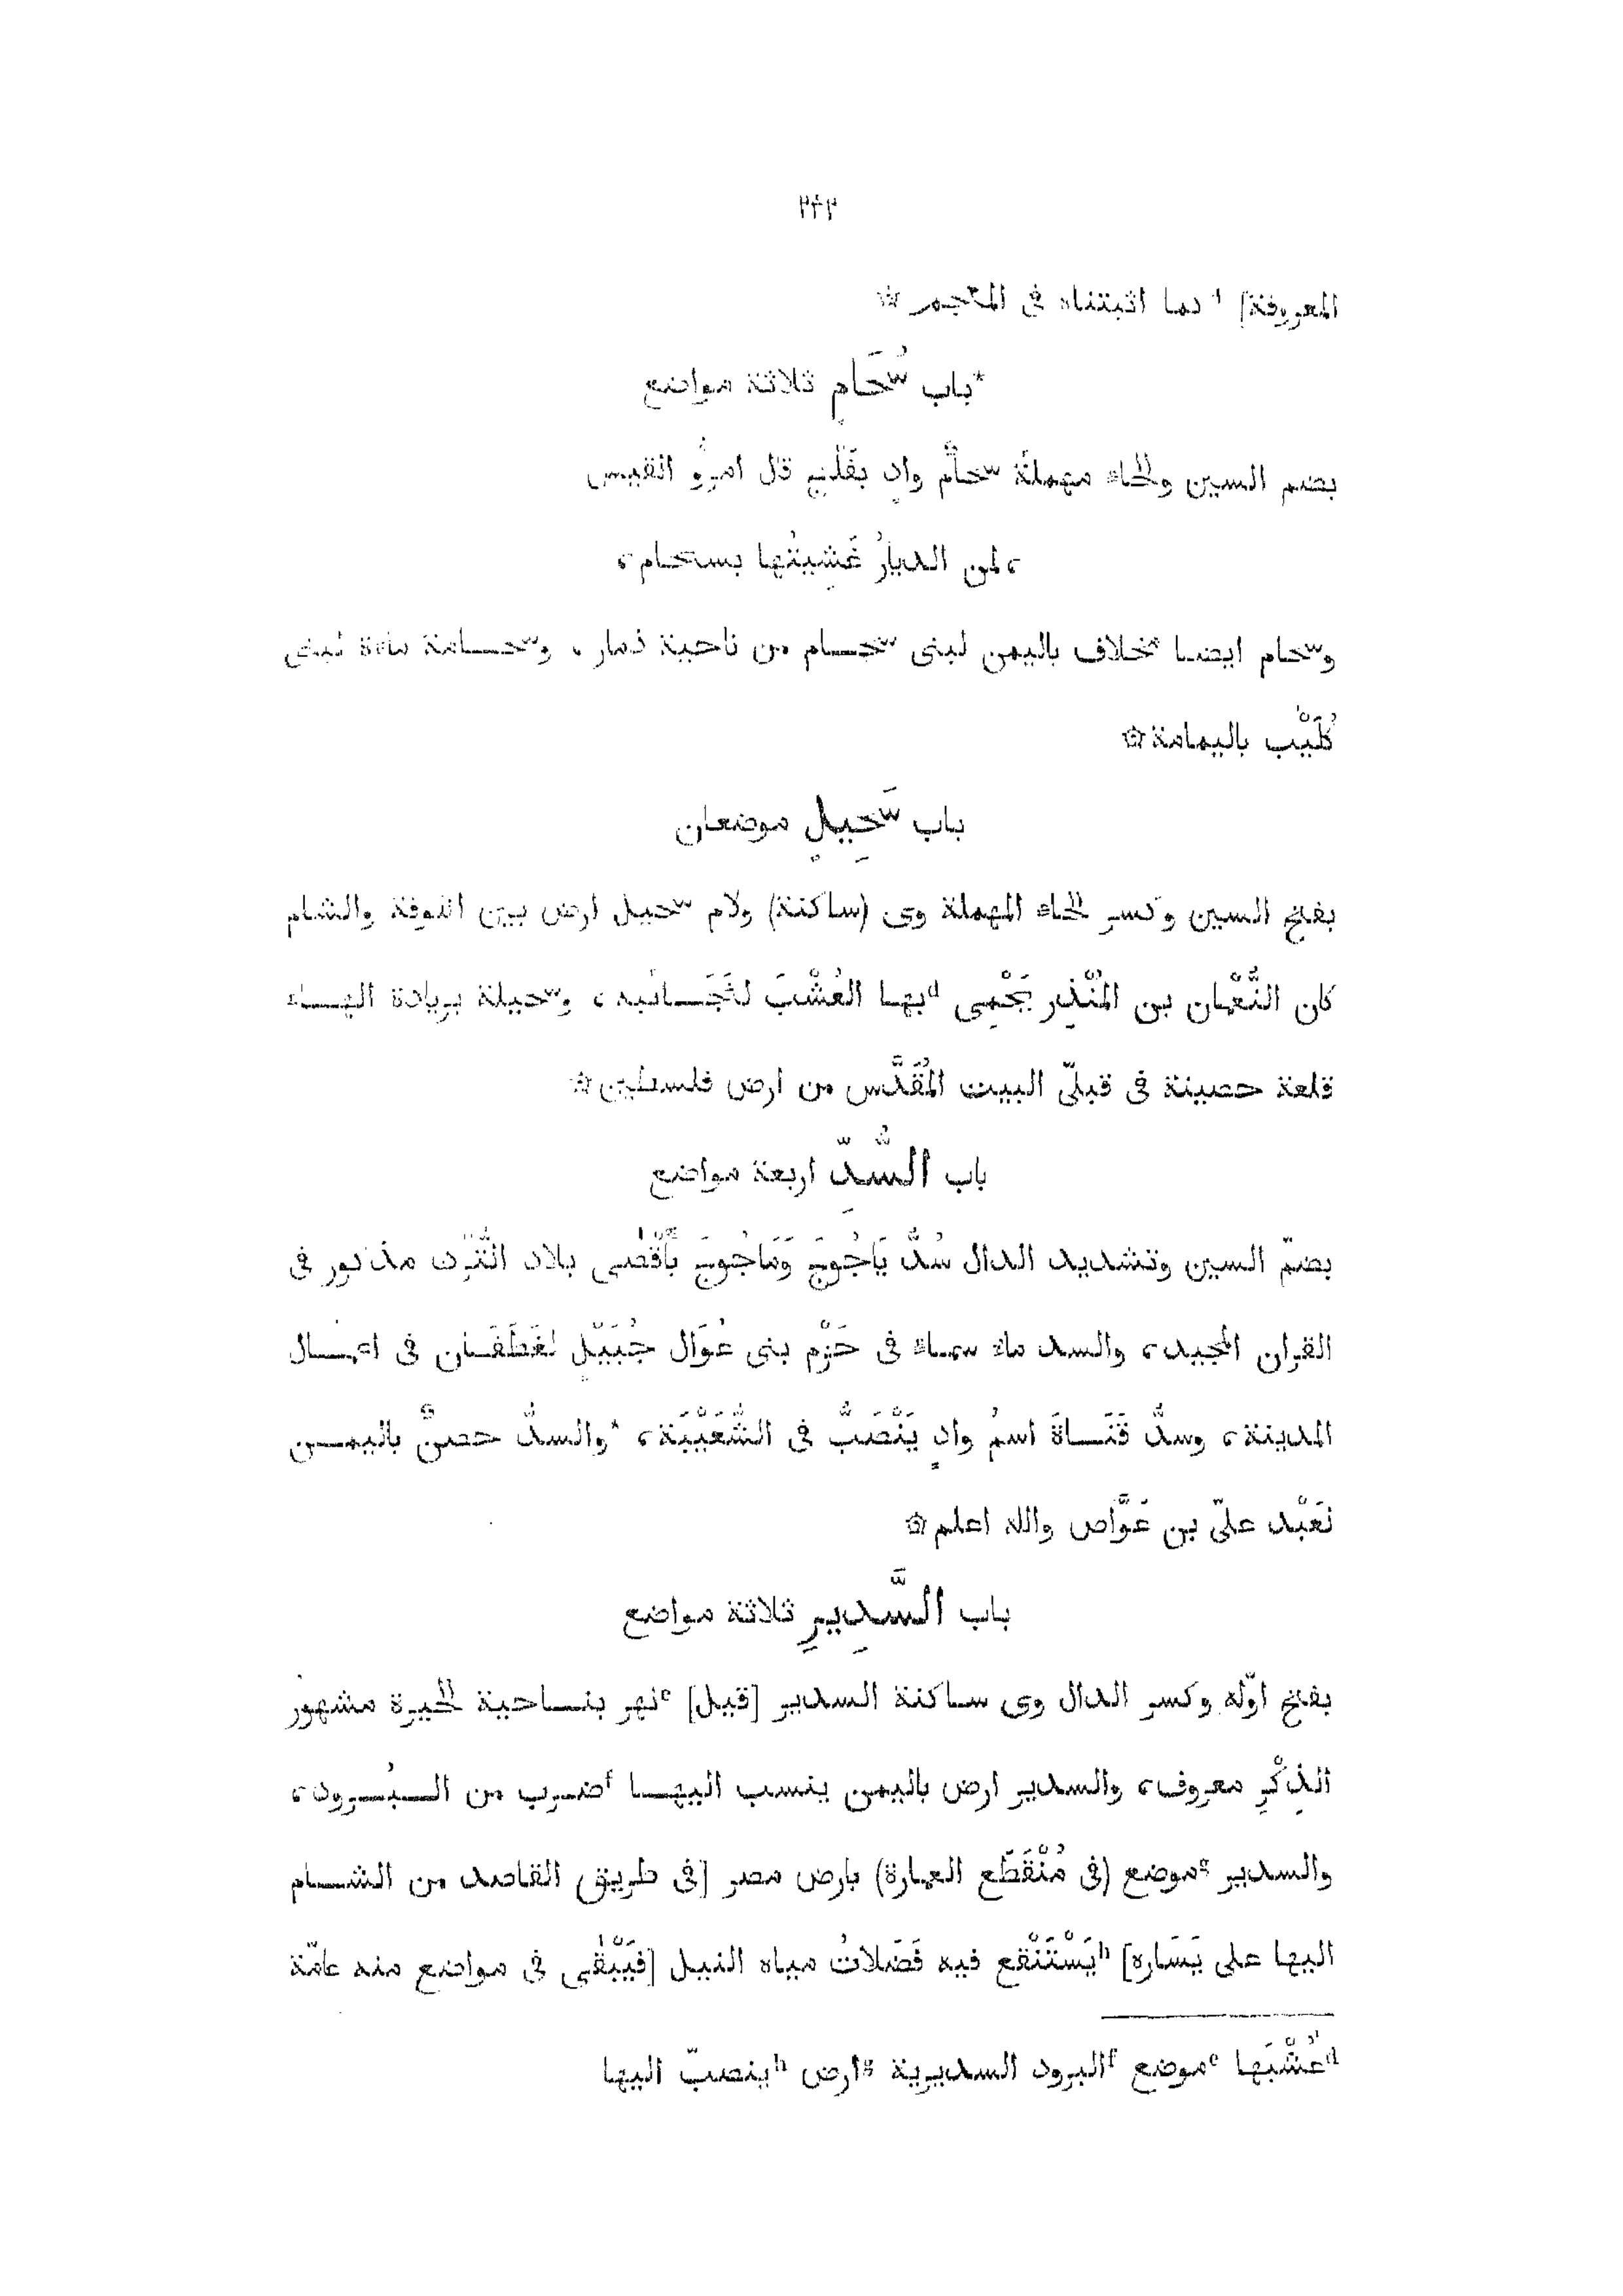 ٢٤٢
المعروفة] كما اثبتناه فى المعجم ۞
*باب سُحَامٍ ثلاثة مواضع
بضم السين والحاء مهملة سحامٌ وادٍ بفَلْجٍ قال امرُو القيس
،لمن الديارُ غَشِيتُها بسحام،
وسحام ايضا مخلاف باليمن لبنى سحـام من ناحية ذمار ، وسحـامة ماءة لبنى
كُلَيْب باليمامة۞
باب سَحِيلٍ موضعان
بفتح السين وكسر الحاء المهملة وى (ساكنة) ولام سحيل ارض بين الكوفة والشام
كان النُّعْمان بن المُنْذِر يَحْمِى ᵈبهـا العُشْبَ لنَجَــائبه، وسحيلة بزيادة الهــاء
قلعة حصينة فى قبلىّ البيت المُقَدَّس من ارض فلسطين۞
باب السُّدِّ اربعة مواضع
بضمّ السين وتشديد الدال سُدُّ يَاجُوجَ وَمَاجُوجَ بأَقْصَى بلاد التُّرْك مذكور فى
القران المجيد، والسد ماء سماء فى حَزْم بنى عُوَال جُبَيْلٍ لغَطَفَـان فى اعمـال
المدينة، وسدُّ قَنَــاةَ اسمُ وادٍ يَنْصَبُّ فى الشُّعَيْبَة، *والسدُّ حصنٌ باليمــن
لعَبْد علىّ بن عَوَّاص والله اعلم۞
باب السَّدِيرِ ثلاثة مواضع
بفتح اوّله وكسر الدال وى ساكنة السدير [قيل] ᵉنهر بنــاحية الحيرة مشهورُ
الذِكْرِ معروف، والسدير ارض باليمن ينسب اليهــا ᶠضرب من الـبُـرود،
والسدير ᵍموضع (فى مُنْقَطَع العمارة) بارض مصر [فى طريق القاصد من الشــام
اليها على يَسَاره] ʰيَسْتَنْقع فيه فَضَلاتُ مياه النيل [فَيَبْقَى فى مواضع منه عامّة
ᵈعُشْبَها ᵉموضع ᶠالبرود السديرية ᵍارض ʰينصبّ اليها